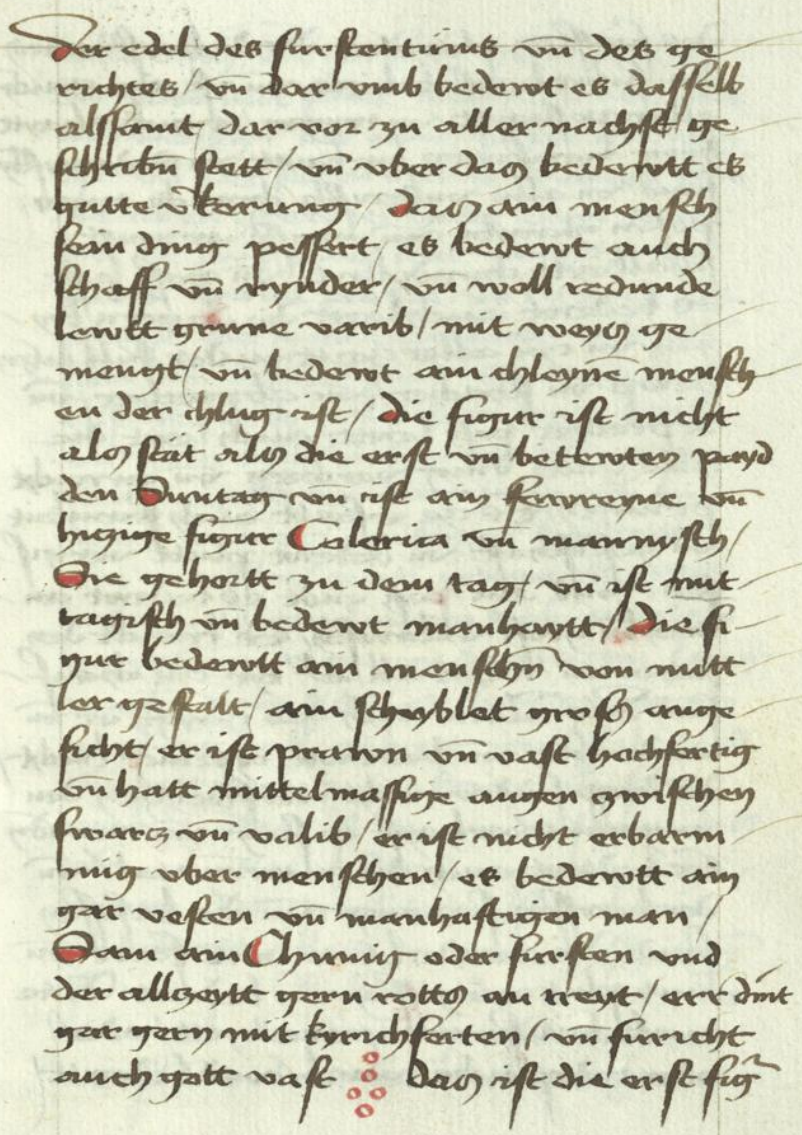 Der edel des furstentums vn̄ des ge
richtes / vn̄ dar vmb bedewt es dasselb
alssamt dar vor zu aller nachst ge
schribn̄ stett / vn̄ vber das bedewtt es
gutte v̄kerung / das ain mensch
sein ding pessert / es bedewt auch
schoff vn̄ rynder / vn̄ woll redunde
lewtt grune varib / mit weys ge
mengt / vn̄ bedewt ain chleynē mensch
en der chlug ist / die figur ist nicht
als stät als die erst vn̄ betewten payd
den Suntag vn̄ ist ain fewreyne vn̄
hiczige figur Colerica vn̄ mannysch /
Sie gehortt zu dem tag / vn̄ ist mit
tagisch vn̄ bedewt manhaytt / Die fi
gur bedewtt ain menschn̄ von mitt
ler gestalt / ain scheyblet gross ange
sicht / er ist prawn vn̄ vast hochfertig
vn̄ hatt mittelmassige augen zwischen
swarcz vn̄ valib / er ist nicht erbarm
mig vber menschen / es bedewtt ain
gar vesten vn̄ manhaftigen man /
Sam ain Chunig oder fursten vnd
der allzeytt gern rotts an treyt / err
gar gern mit kyrichferten / vn̄ furicht
auch gott vast das ist die erst figʳ